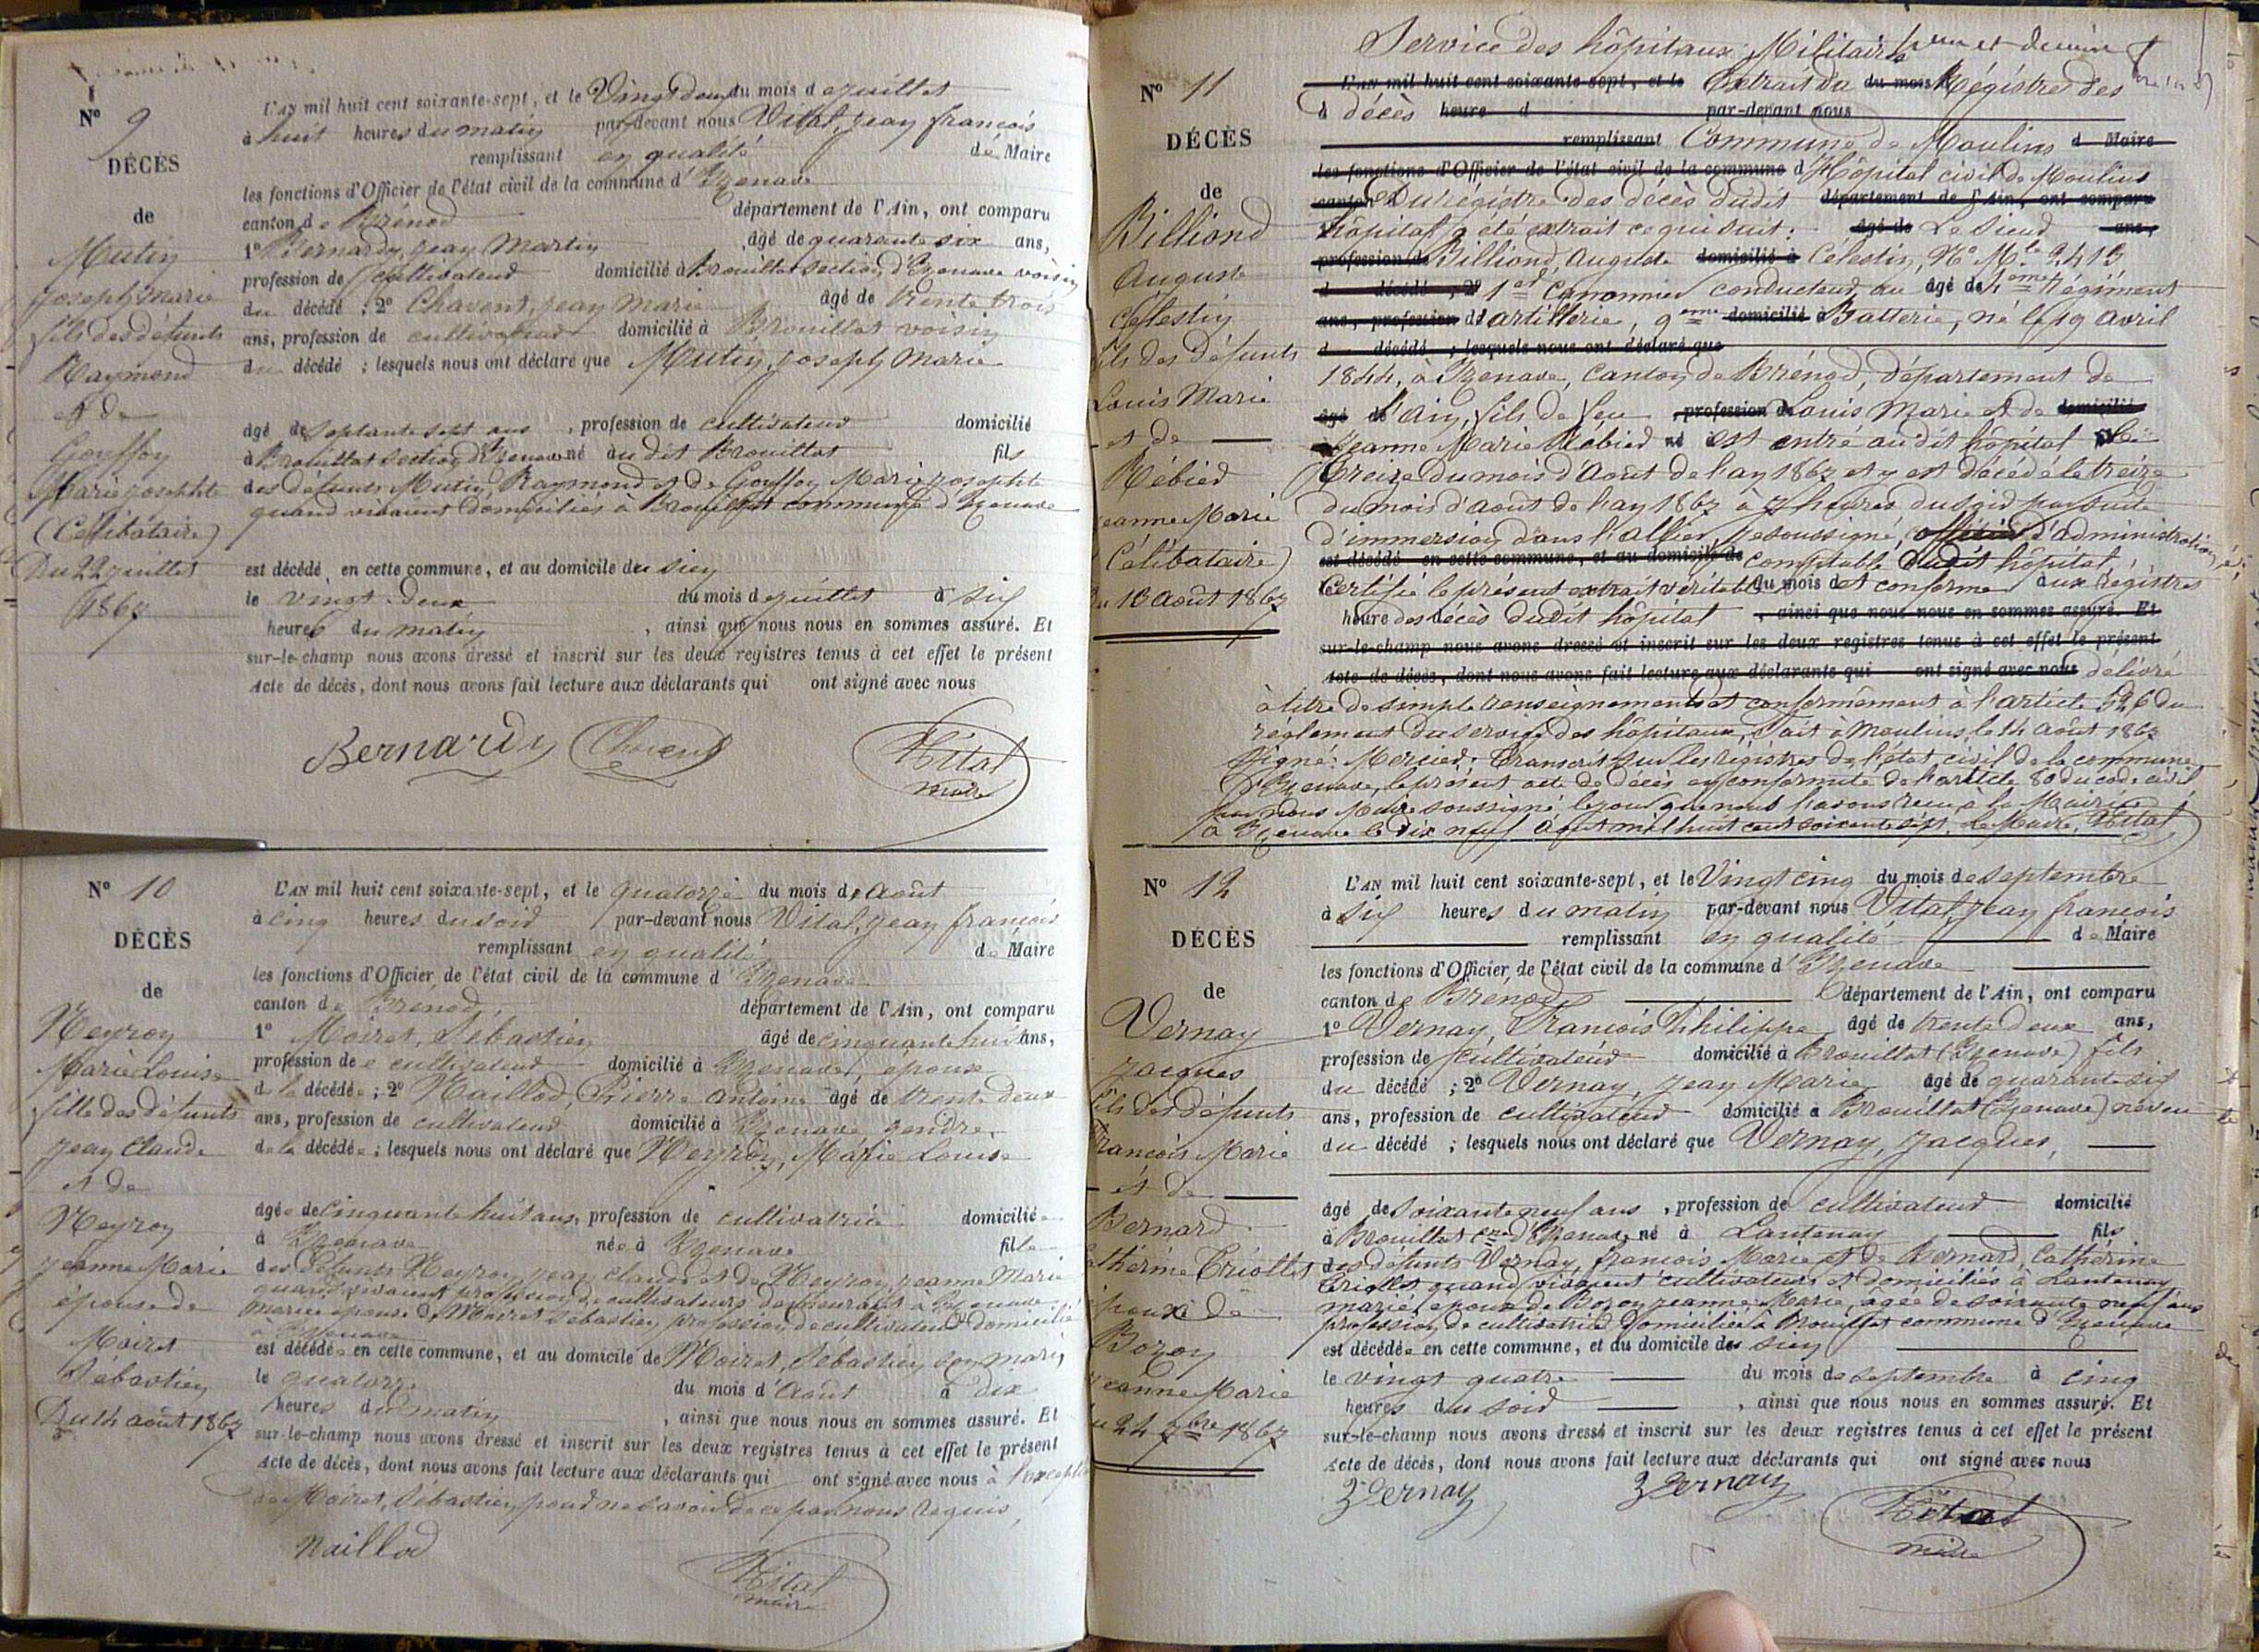 N° 9
DÉCÈS
de
Mutin
Joseph Marie
fils des défunts
Raymond
et de
Gouffon
Marie Josephte
(Célibataire)
Du 22 juillet
1867
L'AN mil huit cent soixante-sept, et le Vingt deux du mois de juillet
à huit heures du matin par-devant nous Vital, Jean françois
remplissant en qualité de Maire
les fonctions d'Officier de l'état civil de la commune d'Izenave
canton de Brénod département de l'Ain, ont comparu
1° Bernardy, Jean Martin âgé de quarante six ans,
profession de cultivateur domicilié à Brouillat section d'Izenave voisin
du décédé ; 2° Chavent, Jean Marie âgé de trente trois
ans, profession de cultivateur domicilié à Brouillat voisin
du décédé ; lesquels nous ont déclaré que Mutin, Joseph Marie
âgé de septante sept ans , profession de cultivateur domicilié
à Brouillat section d'Izenave né au dit Brouillat fils
des défunts Mutin, Raymond et de Gouffon Marie Josephte
quand vivaient domiciliés à Brouillat commune d'Izenave
est décédé en cette commune, et au domicile du sien
le vingt deux du mois de juillet à six
heures du matin , ainsi que nous nous en sommes assuré. Et
sur-le-champ nous avons dressé et inscrit sur les deux registres tenus à cet effet le présent
Acte de décès, dont nous avons fait lecture aux déclarants qui ont signé avec nous
Bernardy Chavent Vital
maire
N° 10
DÉCÈS
de
Neyroy
Marie Louise
fille des défunts
Jean Claude
et de
Neyroy
Jeanne Marie
épouse de
Moiret
Sébastien
Du 14 août 1867
L'AN mil huit cent soixante-sept, et le quatorze du mois d'Août
à cinq heures du soir par-devant nous Vital, Jean françois
remplissant en qualité de Maire
les fonctions d'Officier de l'état civil de la commune d'Izenave
canton de Brenod, département de l'Ain, ont comparu
1° Moiret, Sébastien âgé de cinquante huit ans,
profession de cultivateur domicilié à Izenave, époux
de la décédée ; 2° Maillod, Pierre Antoine âgé de trente deux
ans, profession de cultivateur domicilié à Izenave gendre
de la décédée ; lesquels nous ont déclaré que Neyroy, Marie Louise
âgée de cinquante huit ans, profession de cultivatrice domiciliée
à Izenave née à Izenave fille
des défunts Neyroy, Jean Claude et de Neyroy, Jeanne Marie
quand vivaient profession de cultivateurs demeurant à Izenave
mariée épouse de Moiret Sébastien, profession de cultivateur domicilié
à Izenave
est décédée en cette commune, et au domicile de Moiret, Sébastien son mari
le quatorze du mois d'Août à dix
heures du matin , ainsi que nous nous en sommes assuré. Et
sur-le-champ nous avons dressé et inscrit sur les deux registres tenus à cet effet le présent
Acte de décès, dont nous avons fait lecture aux déclarants qui ont signé avec nous à l'exception
de Moiret, Sébastien, pour ne savoir de ce par nous requis,
Maillod Vital
maire
Service des hôpitaux Militaires
N° 11
DÉCÈS
de
Billiond
Auguste
Célestin
fils des défunts
Louis Marie
et de
Rébied
Jeanne Marie
Célibataire)
Du 13 août 1867
L'AN mil huit cent soixante-sept, et le Extrait du du mois Régistre des
à décès heure d par-devant nous
remplissant Commune de Moulins d Maire
les fonctions d'Officier de l'état civil de la commune d Hôpital civil de Moulins
canton Du régistre des décès dudit département de l'Ain, ont comparu
hôpital a été extrait ce qui suit : âgé de Le Sieur ans,
profession de Billiond, Auguste domicilié à Célestin, N° Mle 2,415
d décédé ; 2° 1er Canonnier conducteur au âgé de 1eme Régiment
ans, profession d'artillerie, 9eme domicilié à Batterie, né le 19 avril
d décédé ; lesquels nous ont déclaré que
1844, à Izenave, Canton de Brénod, département de
âgé de l'ain, fils de feu profession de Louis Marie et de domicilié
à Jeanne Marie Rébied né est entré au dit hôpital le
treize du mois d'août de l'an 1867 et y est décédé le treize
du mois d'août de l'an 1867 à 7 heures du soir par suite
d'immersion dans l'allier, je soussigné, officier d'administration
est décédé en cette commune, et au domicile de comptable dudit hôpital,
Certifie le présent extrait véritable du mois de et conforme aux régistres
heure des décès dudit hôpital , ainsi que nous nous en sommes assuré. Et
sur-le-champ nous avons dressé et inscrit sur les deux registres tenus à cet effet le présent
Acte de décès, dont nous avons fait lecture aux déclarants qui ont signé avec nous délivré
à titre de simple renseignement et conformément à l'article 526 du
règlement du service des hôpitaux, Fait à Moulins, le 14 août 1867
Signé : Mercier : Transcrit sur les régistres de l'état civil de la commune
d'Izenave, le présent acte de décès en conformité de l'article 80 du code civil
par nous Maire soussigné le jour que nous l'avons reçu à la Mairie
à Izenave le dix neuf Août mil huit cent soixante sept. Le Maire, Vital
N° 12
DÉCÈS
de
Vernay
Jacques
fils des défunts
François Marie
et de
Bernard
Catherine Criollet
époux de
Bozon
Jeanne Marie
Du 24 7bre 1867
L'AN mil huit cent soixante-sept, et le Vingt cinq du mois de septembre
à six heures du matin par-devant nous Vital, Jean françois
remplissant en qualité de Maire
les fonctions d'Officier de l'état civil de la commune d'Izenave
canton de Brénod département de l'Ain, ont comparu
1° Vernay, François Philippe, âgé de trente deux ans,
profession de cultivateur domicilié à Brouillat (Izenave) fils
du décédé ; 2° Vernay, Jean Marie âgé de quarante six
ans, profession de cultivateur domicilié à Brouillat (Izenave) neveu
du décédé ; lesquels nous ont déclaré que Vernay, Jacques,
âgé de soixante neuf ans , profession de cultivateur domicilié
à Brouillat cne d'Izenave né à Lantenay fils
des défunts Vernay, françois Marie et de Bernard, Catherine
Criollet, quand vivaient cultivateurs et domiciliés à Lantenay
marié, époux de Bozon Jeanne Marie, âgée de soixante neuf ans
profession de cultivatrice domiciliée à Brouillat commune d'Izenave
est décédé en cette commune, et au domicile des sien
le vingt quatre du mois de septembre à cinq
heures du soir , ainsi que nous nous en sommes assuré. Et
sur-le-champ nous avons dressé et inscrit sur les deux registres tenus à cet effet le présent
Acte de décès, dont nous avons fait lecture aux déclarants qui ont signé avec nous
Vernay Vernay Vital
maire